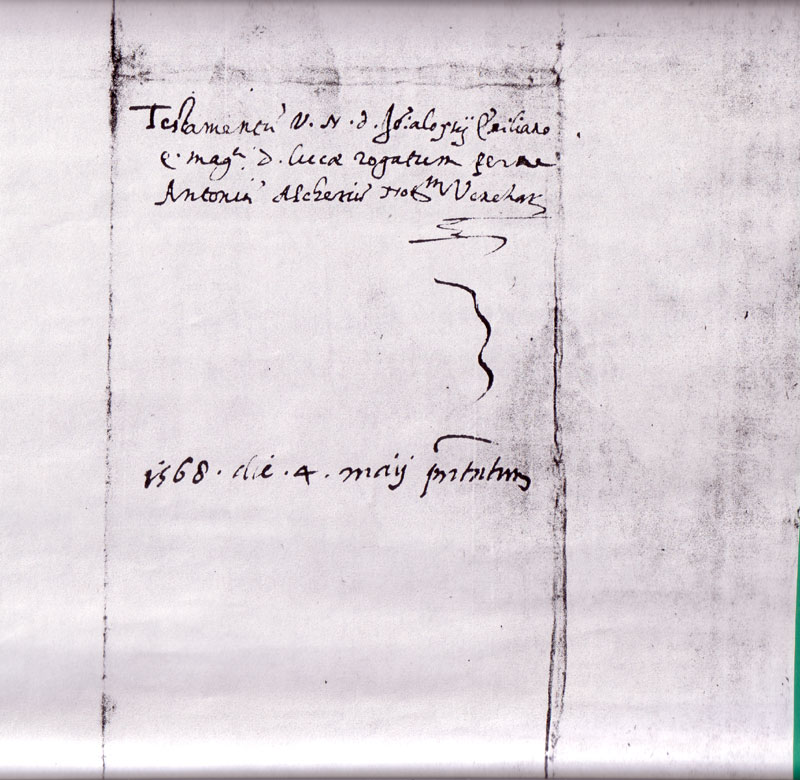 Testamentũ V. N. d. Jo: aloysij Emiliano
q. magci D. Lucæ rogatum per me
Antoniũ Alcheriũ Notm Venetiar
1568. die. 4. maij pñtatum